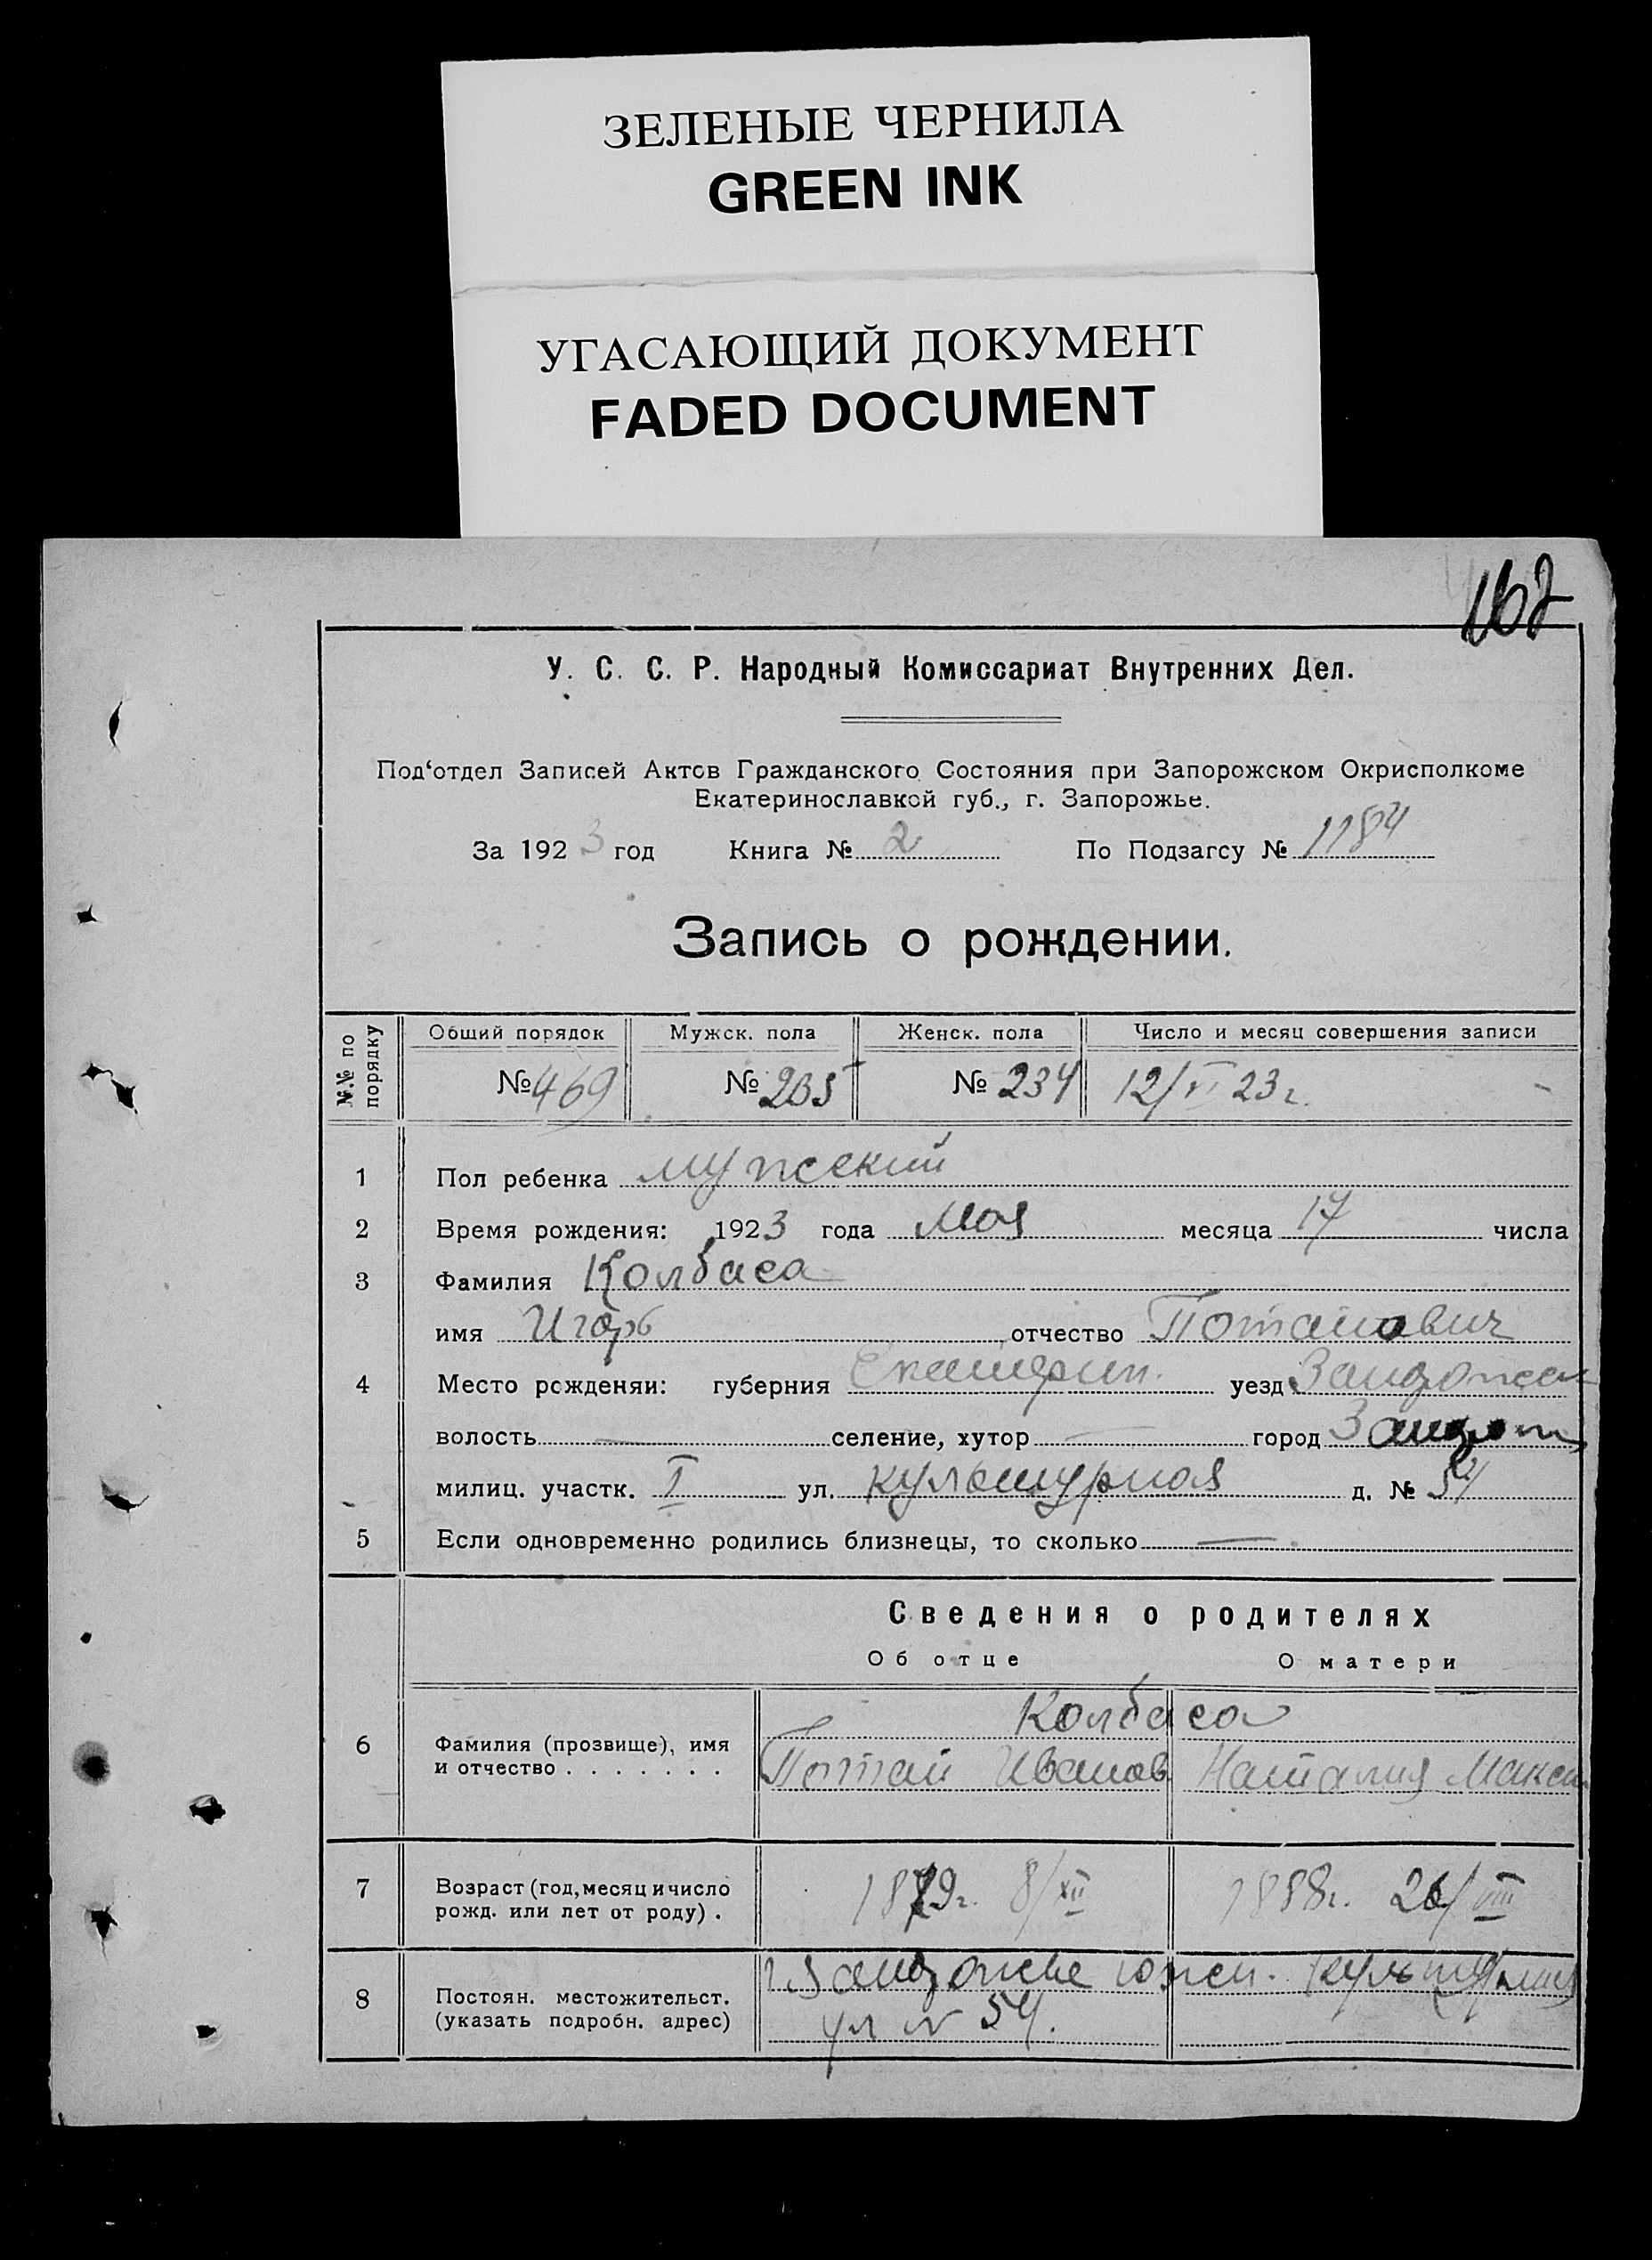 ЗЕЛЕНЫЕ ЧЕРНИЛА
GREEN INK
УГАСАЮЩИЙ ДОКУМЕНТ
FADED DOCUMENT
У. С. С. Р. Народный Комиссариат Внутренних Дел.
Под‘отдел Записей Актов Гражданского Состояния при Запорожском Окрисполкоме
Екатеринославкой губ., г. Запорожье.
За 1923 год Книга № 2 По Подзагсу № 1184
Запись о рождении.
№№ по порядку Общий порядок Мужск. пола Женск. пола Число и месяц совершения записи
№ 469 № 235 № 234 12/VI 23 г.
1 Пол ребенка мужской
2 Время рождения: 1923 года Мая месяца 17 числа
3 Фамилия Колбаса
имя Игорь отчество Потапович
4 Место рожденяи: губерния Екатерин. уезд Запорожск
волость — селение, хутор — город Запорож
милиц. участк. I ул. культурная д. № 54
5 Если одновременно родились близнецы, то сколько —
Сведения о родителях
Об отце О матери
Колбаса
6 Фамилия (прозвище), имя
и отчество . . . . . . . Потап Иванов. Наталия Макси
7 Возраст (год, месяц и число
рожд. или лет от роду) . 1879 г. 8/XII 1888 г. 26/VIII
8 Постоян. местожительст.
(указать подробн. адрес) г. Запорожье южн. культурная
ул № 54.